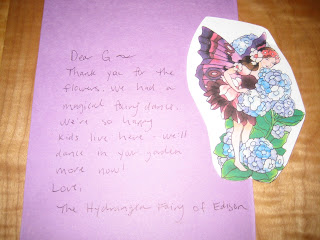 Dear G
Thank you for the
flowers. We had a
magical fairy dance.
We're so happy
kids live here - we'll
dance in your garden
more now!
Love,
The Hydrangea Fairy of Edison